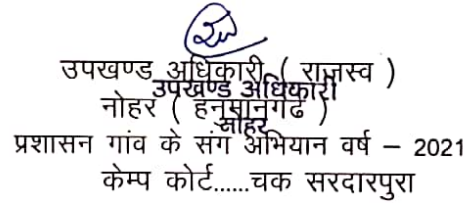 उपखण्ड अधिकारी ( राजस्व )
उपखण्ड अधिकारी
नोहर ( हनुमानगढ )
नोहर
प्रशासन गांव के संग अभियान वर्ष – 2021
केम्प कोर्ट......चक सरदारपुरा